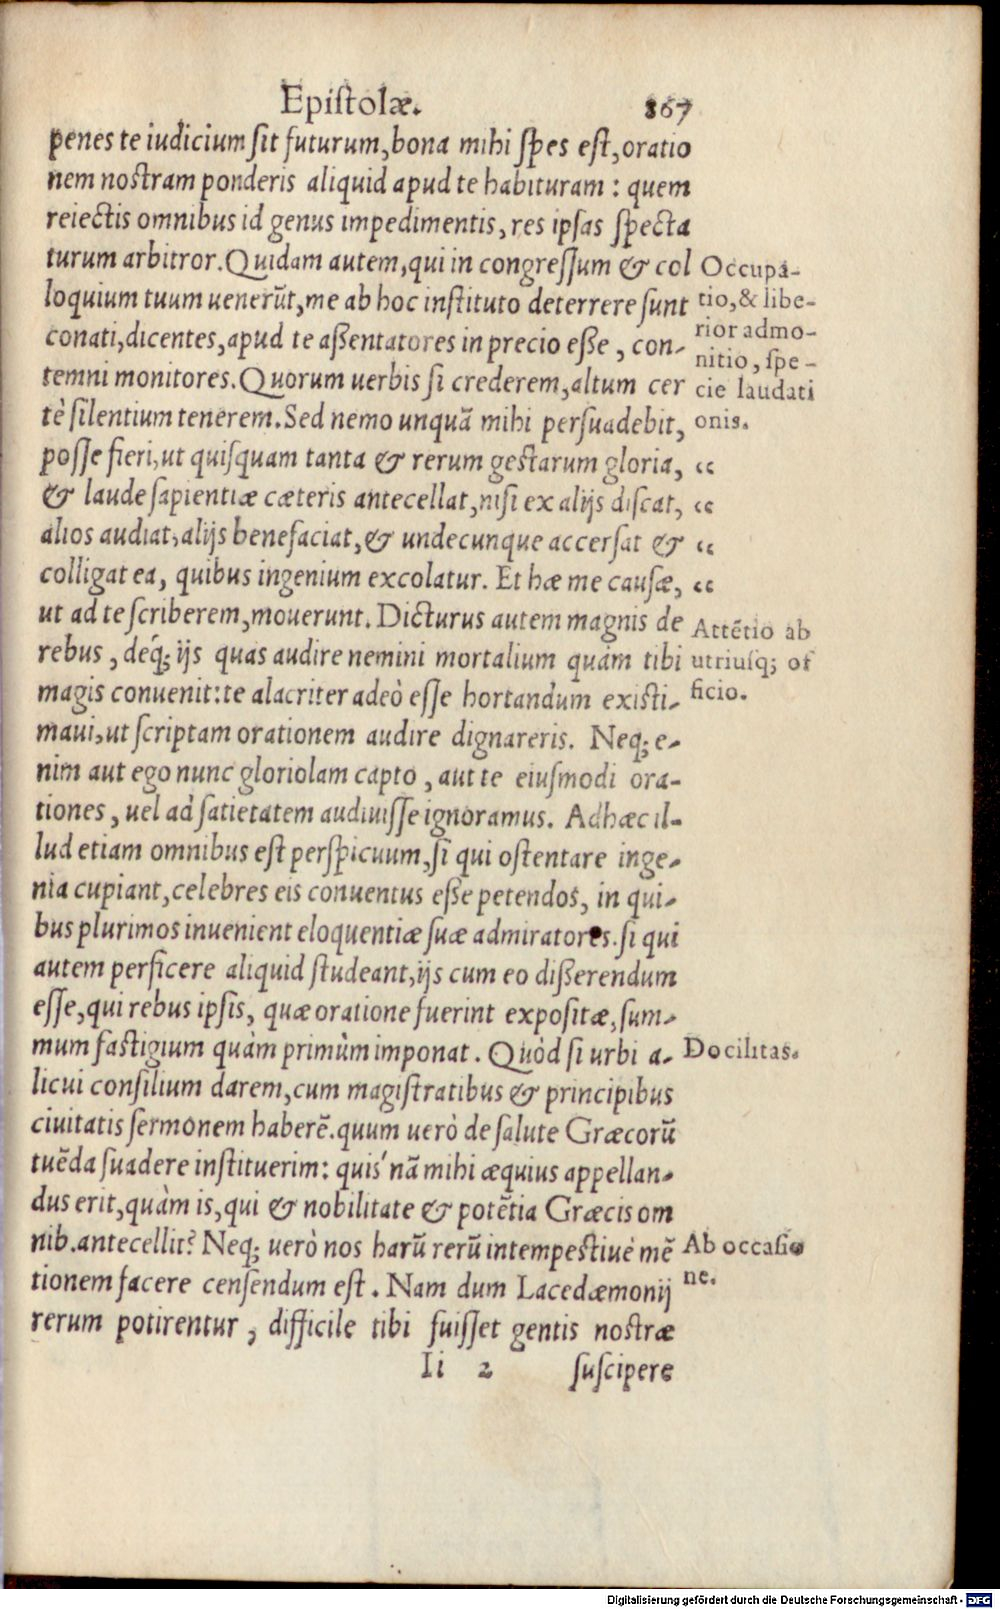 Epiſtolæ. 867
penes te iudicium ſit futurum, bona mihi ſpes eſt, oratio
nem noſtram ponderis aliquid apud te habituram : quem
reiectis omnibus id genus impedimentis, res ipſas ſpecta
turum arbitror. Quidam autem, qui in congreſſum & col
loquium tuum uenerūt, me ab hoc inſtituto deterrere ſunt
conati, dicentes, apud te aßentatores in precio eße, con-
temni monitores. Quorum uerbis ſi crederem, altum cer
tè ſilentium tenerem. Sed nemo unquā mihi perſuadebit,
poſſe fieri, ut quiſquam tanta & rerum geſtarum gloria,
& laude ſapientiæ cæteris antecellat, niſi ex alijs diſcat,
alios audiat, alijs benefaciat, & undecunque accerſat &
colligat ea, quibus ingenium excolatur. Et hæ me cauſæ,
ut ad te ſcriberem, mouerunt. Dicturus autem magnis de
rebus, deq́; ijs quas audire nemini mortalium quàm tibi
magis conuenit: te alacriter adeò eſſe hortandum exiſti-
maui, ut ſcriptam orationem audire dignareris. Neq; e-
nim aut ego nunc gloriolam capto, aut te eiuſmodi ora-
tiones, uel ad ſatietatem audiuiſſe ignoramus. Adhæc il-
lud etiam omnibus eſt perſpicuum, ſi qui oſtentare inge-
nia cupiant, celebres eis conuentus eße petendos, in qui-
bus plurimos inuenient eloquentiæ ſuæ admiratores. ſi qui
autem perficere aliquid ſtudeant, ijs cum eo dißerendum
eſſe, qui rebus ipſis, quæ oratione fuerint expoſitæ, ſum-
mum faſtigium quàm primùm imponat. Quòd ſi urbi a-
licui conſilium darem, cum magiſtratibus & principibus
ciuitatis ſermonem haberē. quum uerò de ſalute Græcorū
tuēda ſuadere inſtituerim: quis'nā mihi æquius appellan-
dus erit, quàm is, qui & nobilitate & potētia Græcis om
nib. antecellit? Neq; uerò nos harū rerū intempeſtiuè mē
tionem facere cenſendum eſt. Nam dum Lacedæmonij
rerum potirentur, difficile tibi fuiſſet gentis noſtræ
Ii 2 ſuſcipere
Occupa-
tio, & libe-
rior admo-
nitio, ſpe-
cie laudati
onis.
“
“
“
“
Attētio ab
utriuſq; of
ficio.
Docilitas.
Ab occaſio
ne.
Digitalisierung gefördert durch die Deutsche Forschungsgemeinschaft - DFG